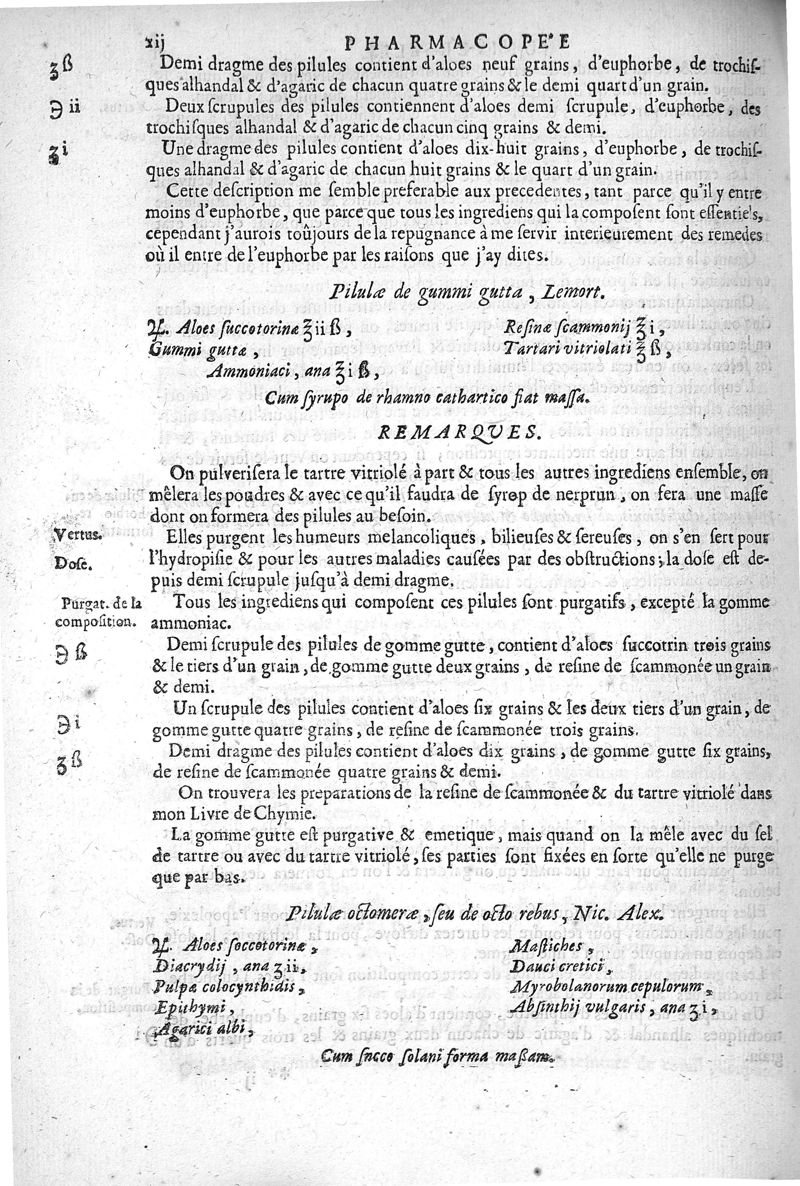 xij PHARMACOPE'E
ʒ ß Demi dragme des pilules contient d'aloes neuf grains, d'euphorbe, de trochiſ-
ques alhandal & d'agaric de chacun quatre grains & le demi quart d'un grain.
℈ ii Deux ſcrupules des pilules contiennent d'aloes demi ſcrupule, d'euphorbe, des
trochiſques alhandal & d'agaric de chacun cinq grains & demi.
ʒ i Une dragme des pilules contient d'aloes dix-huit grains, d'euphorbe, de trochiſ-
ques alhandal & d'agaric de chacun huit grains & le quart d'un grain.
Cette deſcription me ſemble preferable aux precedentes, tant parce qu'il y entre
moins d'euphorbe, que parce que tous les ingrediens qui la compoſent ſont eſſentiels,
cependant j'aurois toûjours de la repugnance à me ſervir interieurement des remedes
où il entre de l'euphorbe par les raiſons que j'ay dites.
Pilulæ de gummi gutta, Lemort.
♃. Aloes ſuccotorinæ ℥ ii ß, Reſinæ ſcammonij ℥ i,
Gummi guttæ, Tartari vitriolati ℥ ß,
Ammoniaci, ana ℥ i ß,
Cum ſyrupo de rhamno cathartico fiat maſſa.
REMARQUES.
On pulveriſera le tartre vitriolé à part & tous les autres ingrediens enſemble, on
mêlera les poudres & avec ce qu'il faudra de ſyrop de nerprun, on fera une maſſe
dont on formera des pilules au beſoin.
Vertus. Elles purgent les humeurs melancoliques, bilieuſes & ſereuſes, on s'en ſert pour
Doſe. l'hydropiſie & pour les autres maladies cauſées par des obſtructions; la doſe eſt de-
puis demi ſcrupule juſqu'à demi dragme.
Purgat. de la Tous les ingrediens qui compoſent ces pilules ſont purgatifs, excepté la gomme
compoſition. ammoniac.
℈ ß Demi ſcrupule des pilules de gomme gutte, contient d'aloes ſuccotrin trois grains
& le tiers d'un grain, de gomme gutte deux grains, de reſine de ſcammonée un grain
& demi.
℈ i Un ſcrupule des pilules contient d'aloes ſix grains & les deux tiers d'un grain, de
gomme gutte quatre grains, de reſine de ſcammonée trois grains.
ʒ ß Demi dragme des pilules contient d'aloes dix grains, de gomme gutte ſix grains,
de reſine de ſcammonée quatre grains & demi.
On trouvera les preparations de la reſine de ſcammonée & du tartre vitriolé dans
mon Livre de Chymie.
La gomme gutte eſt purgative & emetique, mais quand on la mêle avec du ſel
de tartre ou avec du tartre vitriolé, ſes parties ſont fixées en ſorte qu'elle ne purge
que par bas.
Pilulæ octomeræ, ſeu de octo rebus, Nic. Alex.
♃. Aloes ſoccotorinæ, Maſtiches,
Diacrydij, ana ʒ ii, Dauci cretici,
Pulpæ colocynthidis, Myrobolanorum cepulorum,
Epithymi, Abſinthij vulgaris, ana ʒ i,
Agarici albi,
Cum ſucco ſolani forma maßam.